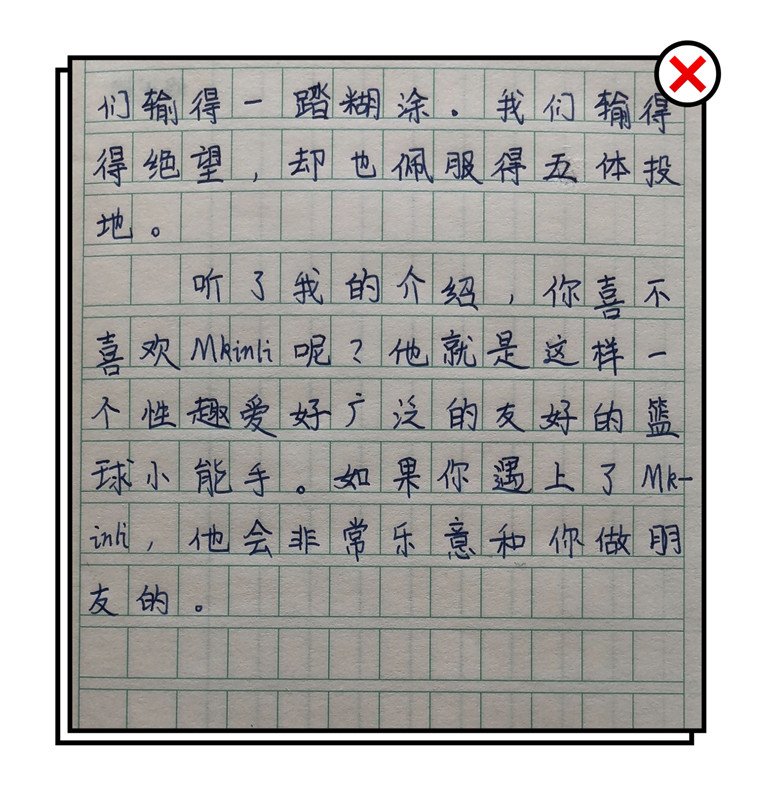 们输得一踏糊涂。我们输得
得绝望，却也佩服得五体投
地。
听了我的介绍，你喜不
喜欢Mkinli呢？他就是这样一
个性趣爱好广泛的友好的篮
球小能手。如果你遇上了Mk-
inli，他会非常乐意和你做朋
友的。